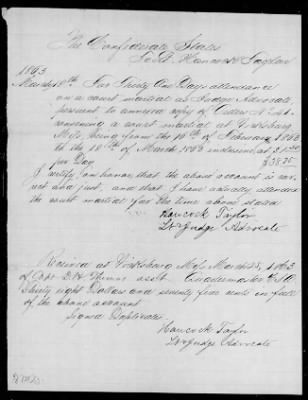 The Confederate States
To Lt. Hancock Taylor
1863
March 18th For Thirty One Days attendance
on a court martial as Judge Advocate,
pursuant to annexed copy of Orders No
convening a court martial at Vicksburg
Miss, being from the 16th of February 1863
to the 18th of March 1863 inclusive at $1.25
per Day $38.75
I certify on honor, that the above account is cor
rect and just, and that I have actually attended
the court martial for the time above stated
Hancock Taylor
Lt & Judge Advocate
Received at Vicksburg Miss March 25, 1863
of Capt D H asst. Quartermaster C.S.A
thirty eight Dollars and seventy five cents in full
of the above account
Signed Duplicates
Hancock Taylor
Lt & Judge Advocate